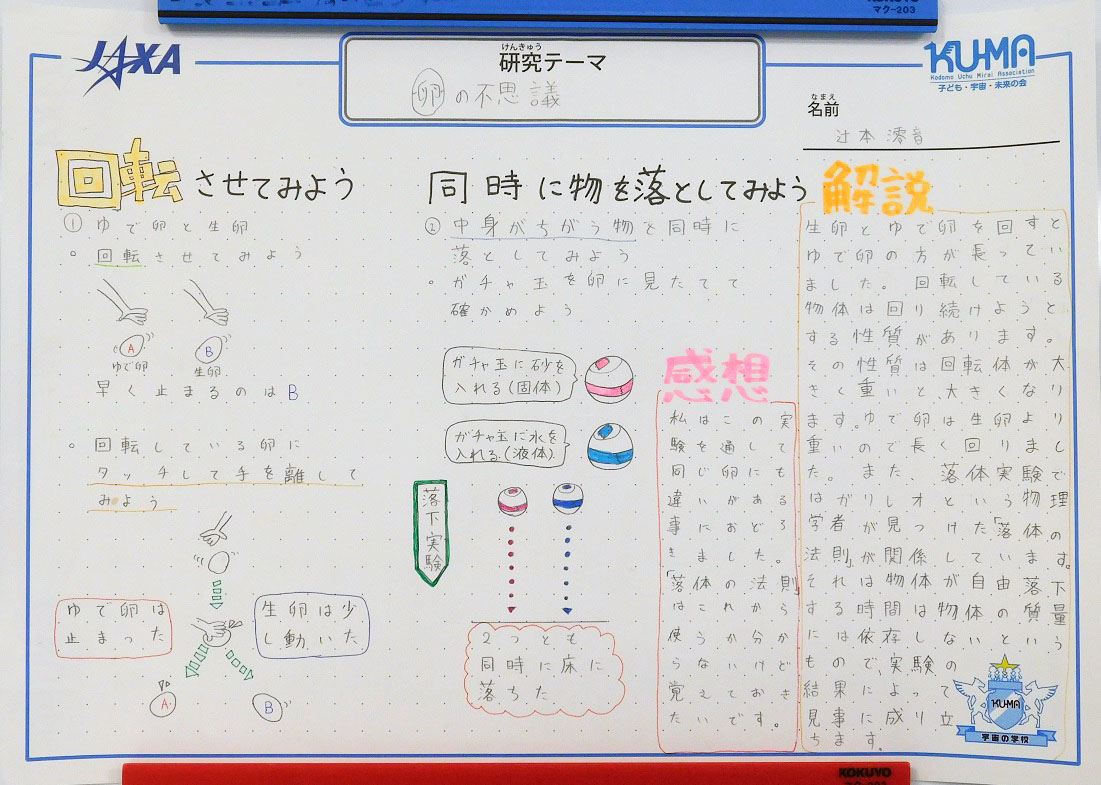 KOKUYO
マク-203
JAXA
けんきゅう
研究テーマ
卵の不思議
KU-MA
Kodomo Uchu Mirai Association
子ども・宇宙・未来の会
なまえ
名前
辻本 澪音
回転させてみよう
① ゆで卵と生卵
。回転させてみよう
A
B
ゆで卵
生卵
早く止まるのはB
。回転している卵に
タッチして手を離して
みよう
ゆで卵は
止まった
生卵は少
し動いた
A
B
同時に物を落としてみよう
② 中身がちがう物を同時に
落としてみよう
。ガチャ玉を卵に見たてて
確かめよう
ガチャ玉に砂を
入れる(固体)
ガチャ玉に水を
入れる(液体)
落下実験
2つとも
同時に床に
落ちた
感想
私はこの実
験を通して
同じ卵にも
違いがある
事におどろ
きました。
「落体の法則」
はこれから
使うか分か
らないけど
覚えておき
たいです。
解説
生卵とゆで卵を回すと
ゆで卵の方が長ってい
ました。回転している
物体は回り続けようと
する性質があります。
その性質は回転体が大
きく重いと大きくなり
ます。ゆで卵は生卵より
重いので長く回りまし
た。また、落体実験で
はガリレオという物理
学者が見つけた「落体の
法則」が関係しています。
それは物体が自由落下
する時間は物体の質量
には依存しないという
もので、実験の
結果によって
見事に成り立
ちます。
KU-MA
宇宙の学校
KOKUYO